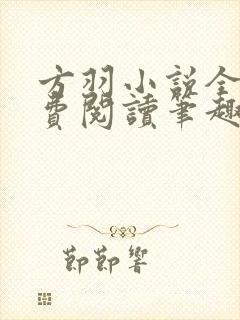 方羽小説全
費閱讀筆趣
節節響